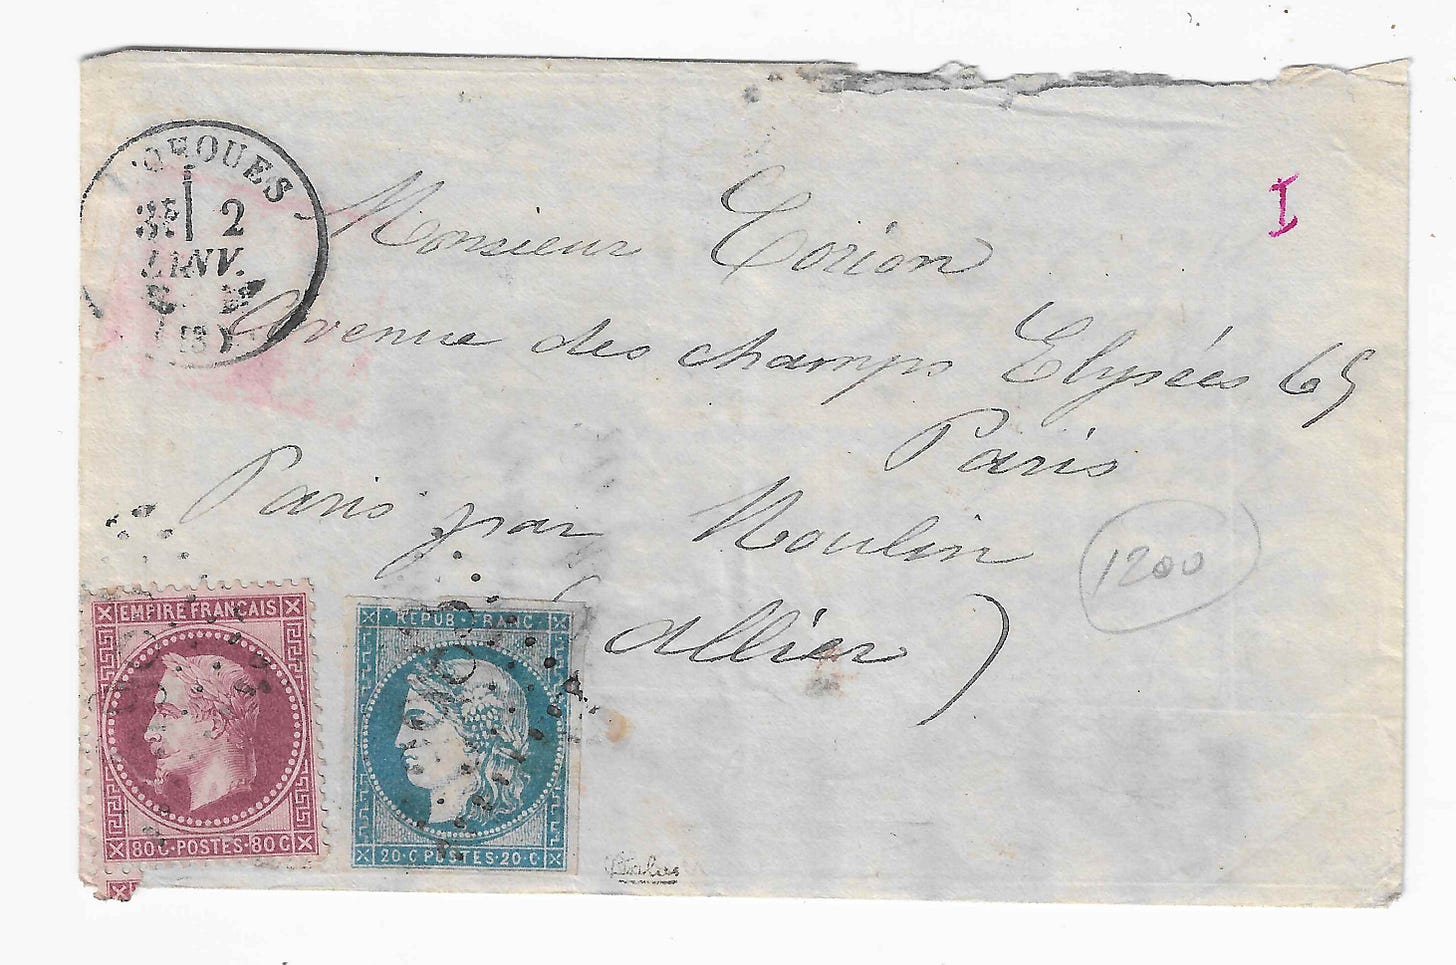 ORQUES
2
JANV.
(83)
Monsieur Corion
Avenue des champs Elysées 65
Paris
Paris par Moulin
(allier)
I
1200
EMPIRE FRANÇAIS
80 C · POSTES · 80 C
REPUB · FRANC ·
20 · C POSTES · 20 · C